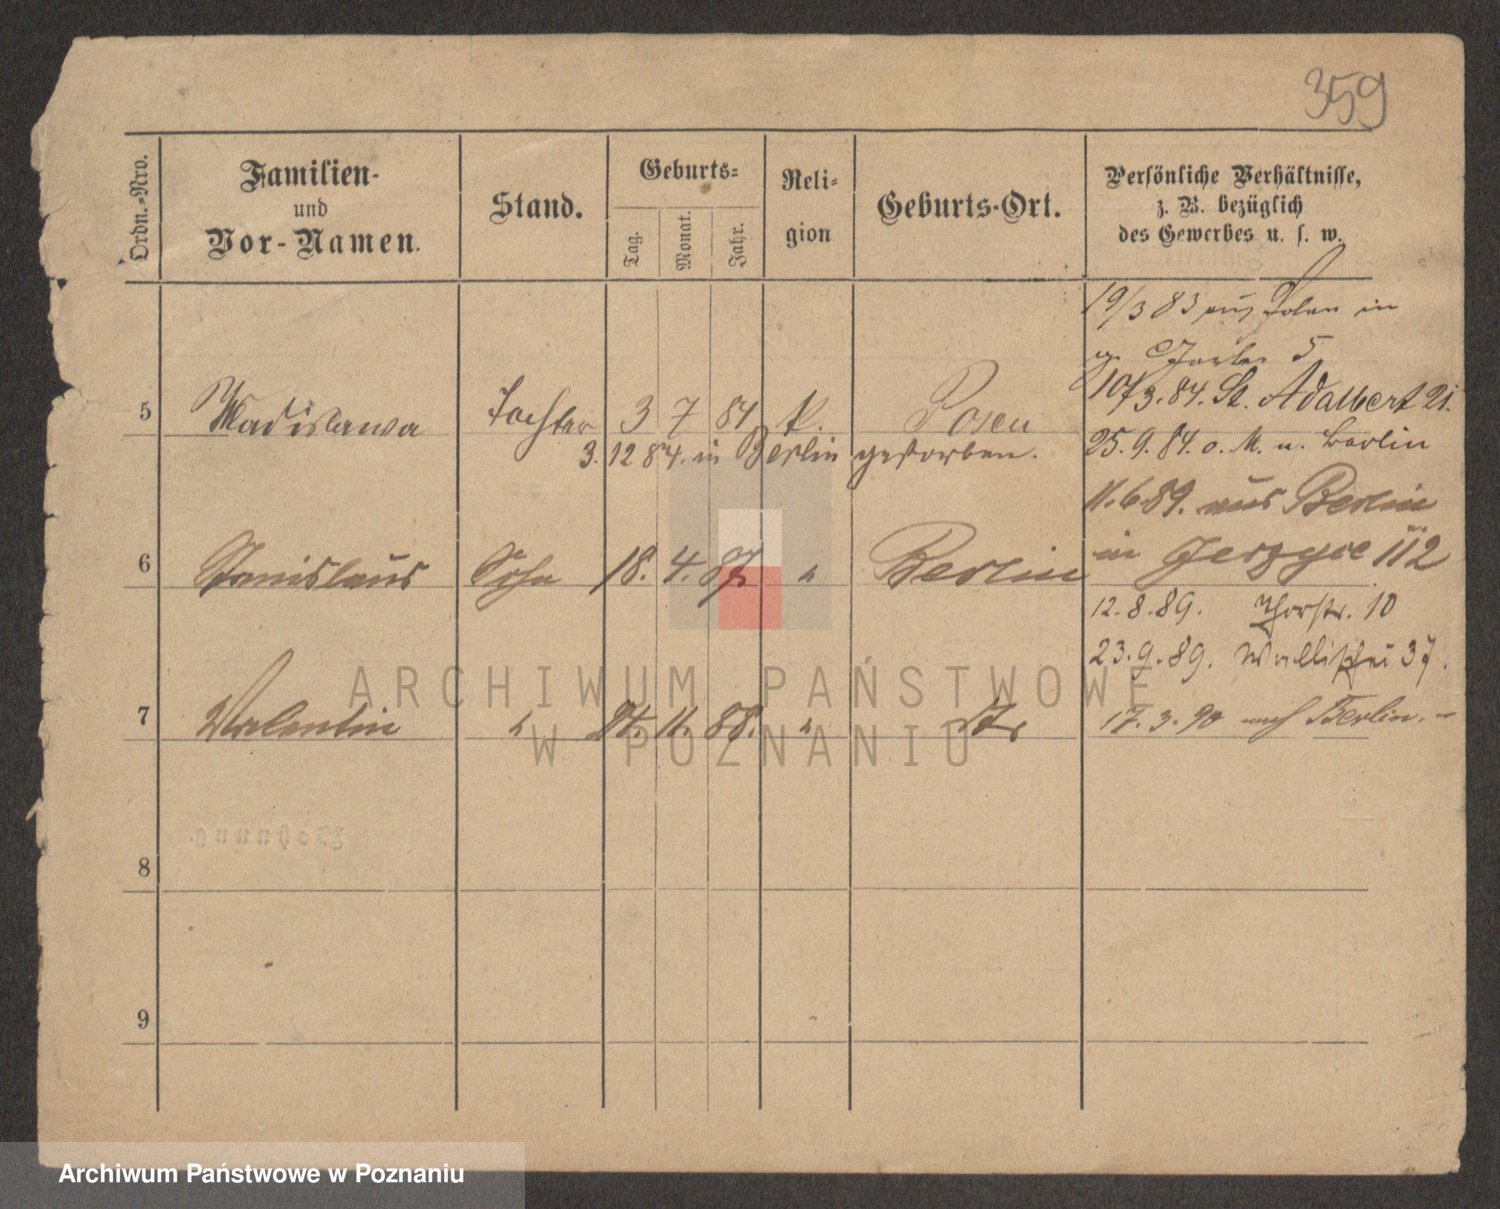 359
Ordn.-Nro.
Familien-
und
Vor-Namen.
Stand.
Geburts-
Tag.
Monat.
Jahr.
Reli-
gion
Geburts-Ort.
Persönliche Verhältnisse,
z. B. bezüglich
des Gewerbes u. s. w.
19/3 83 aus Polen in
5
10/3. 84. St. Adalbert 21.
5 Wladislawa Tochter 3 7 84 k. Posen
25. 9. 84. o. M. n. Berlin
3. 12 84. in Berlin gestorben.
11. 6. 89. aus Berlin
in Jerzyce 112
6 Stanislaus Sohn 18. 4. 87 " Berlin
12. 8. 89. Thorstr. 10
23. 9. 89. Wallischei 37.
7 Valentin " 11. 88. "
17. 3. 90 nach Berlin. -
8
9
ARCHIWUM PAŃSTWOWE
W POZNANIU
Archiwum Państwowe w Poznaniu